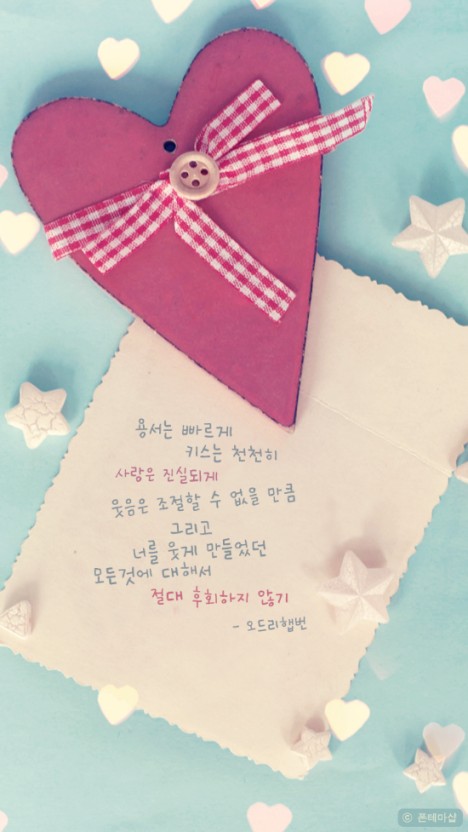 용서는 빠르게
키스는 천천히
사랑은 진실되게
웃음은 조절할 수 없을 만큼
그리고
너를 웃게 만들었던
모든것에 대해서
절대 후회하지 않기
- 오드리햅번
ⓒ 폰테마샵